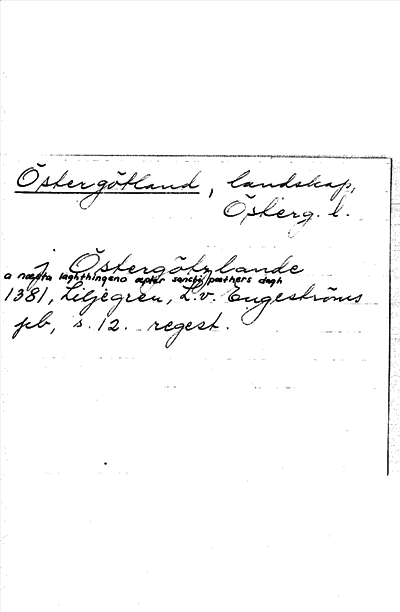 Östergötland, landskap,
Österg. l.
j Östergötzlande
a næsta laghthingeno æpter sancti pæthers dagh
1381, Liljegren, L.v. Engeströms
pb, s. 12. regest.